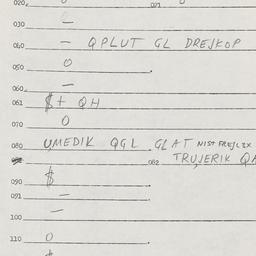 020
021
030 —
040 — QPLUT GL DREJKOP
050 O
060 —
061 $+ QH
070 O
080 UMEDIK QGL GLAT NIST FREJLZX
082 TRUJERIK QA
090 $
091 —
100 —
110 O
$